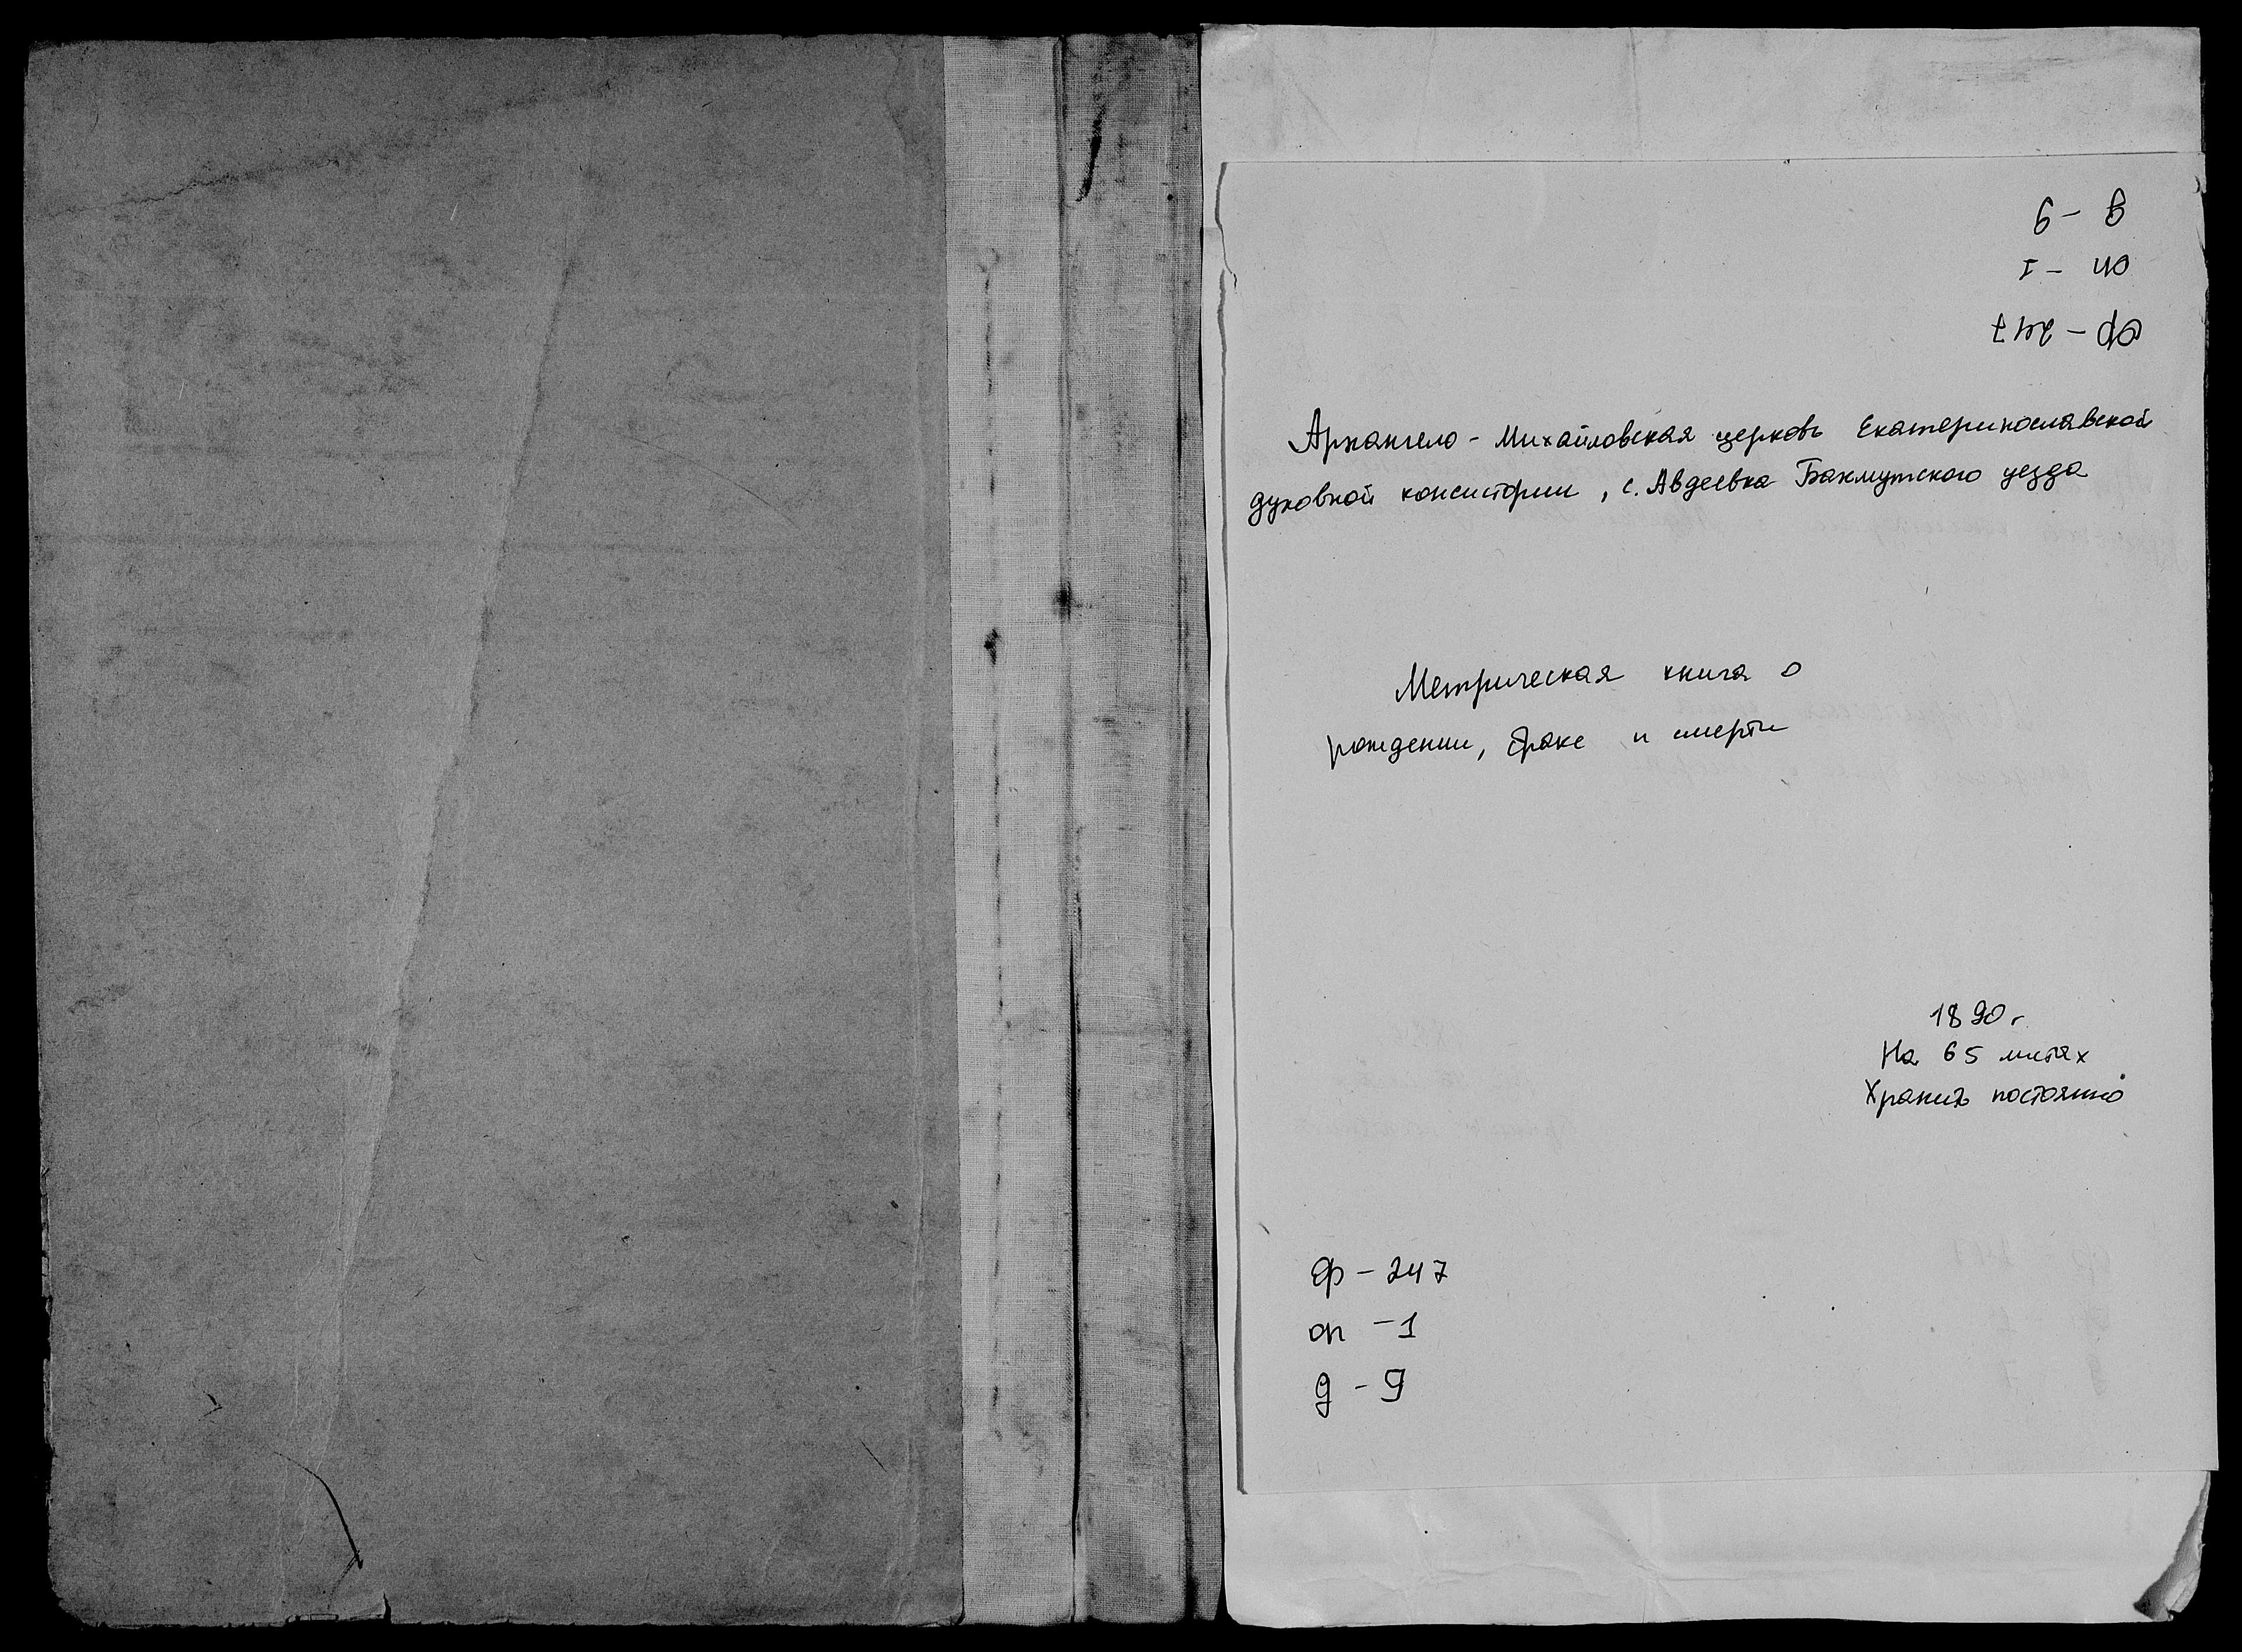 д - 9
оп - 1
Ф - 247
Архангело - Михайловская церковь Екатеринославской
духовной консистории, с. Авдеевка Бахмутского уезда
Метрическая книга о
рождении, браке и смерти
1890 г
На 65 листах
Хранить постоянно
Ф - 247
оп - 1
д - 9